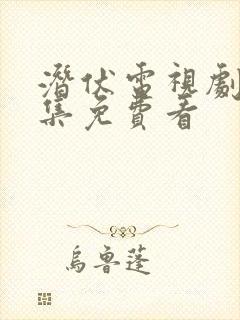 潛伏電視劇
集免費看
烏魯蓬